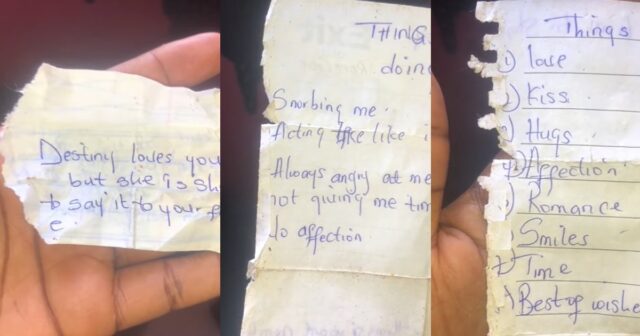 Destiny loves you
but she is sh
to say it to your f
e.
THING
doing
Snorbing me.
Acting like like i
Always angry at me
not giving me tim
to affection.
Things
1) love
2) Kiss
3) Hugs
4) Affection
5) Romance
6) Smiles
7) Time
8) Best of wishe